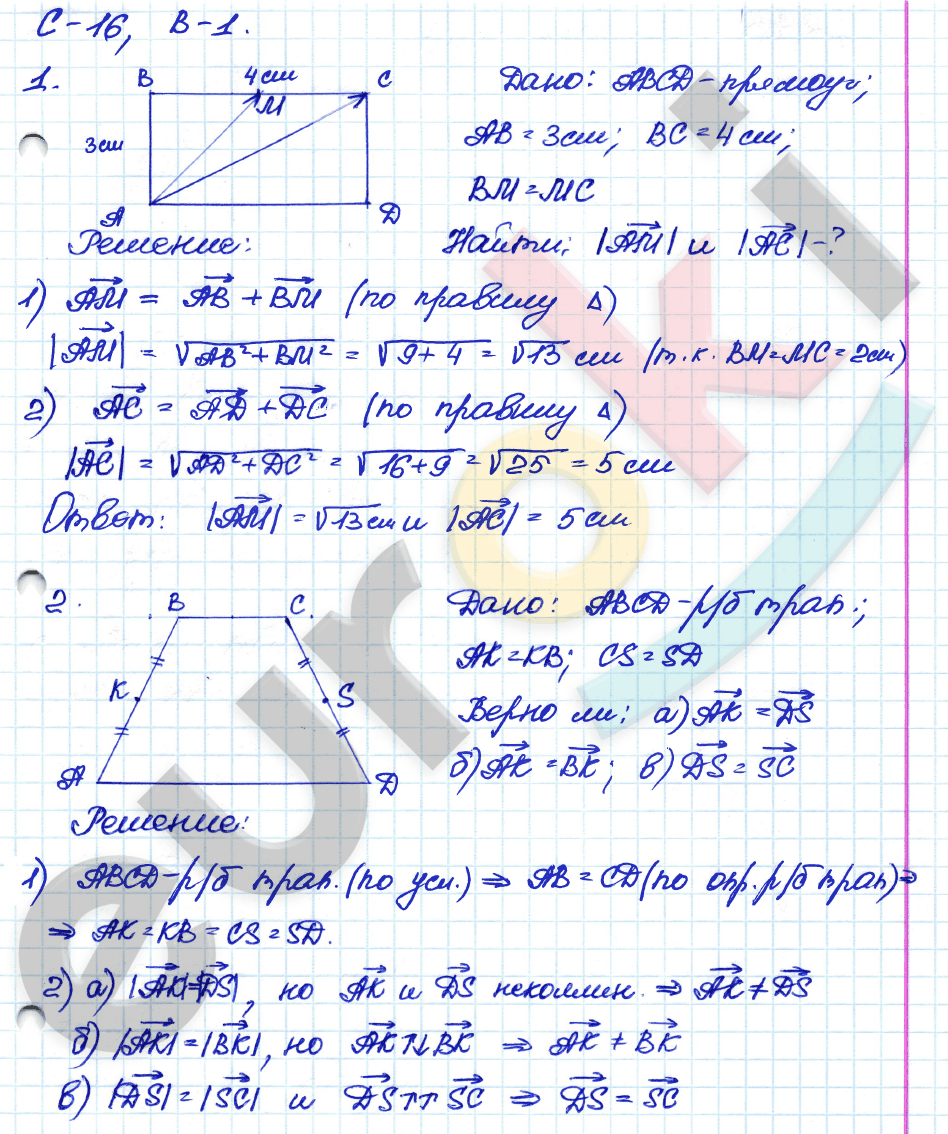 С-16, В-1.
1.
B 4 см C
M
3 см
A D
Дано: ABCD - прямоуг;
AB = 3 см; BC = 4 см;
BM = MC
Найти: |AM| и |AC| - ?
Решение:
1) AM = AB + BM (по правилу Δ)
|AM| = √AB² + BM² = √9 + 4 = √13 см (т.к. BM = MC = 2 см)
2) AC = AD + DC (по правилу Δ)
|AC| = √AD² + DC² = √16 + 9 = √25 = 5 см
Ответ: |AM| = √13 см и |AC| = 5 см
2.
B C
K S
A D
Дано: ABCD - р/б трап.;
AK = KB; CS = SD
Верно ли: а) AK = DS
б) AK = BK; в) DS = SC
Решение:
1) ABCD - р/б трап. (по усл.) ⇒ AB = CD (по опр. р/б трап) ⇒
⇒ AK = KB = CS = SD.
2) а) |AK| = |DS|, но AK и DS неколлин. ⇒ AK ≠ DS
б) |AK| = |BK|, но AK ↑↓ BK ⇒ AK ≠ BK
в) |DS| = |SC| и DS ↑↑ SC ⇒ DS = SC
euroki